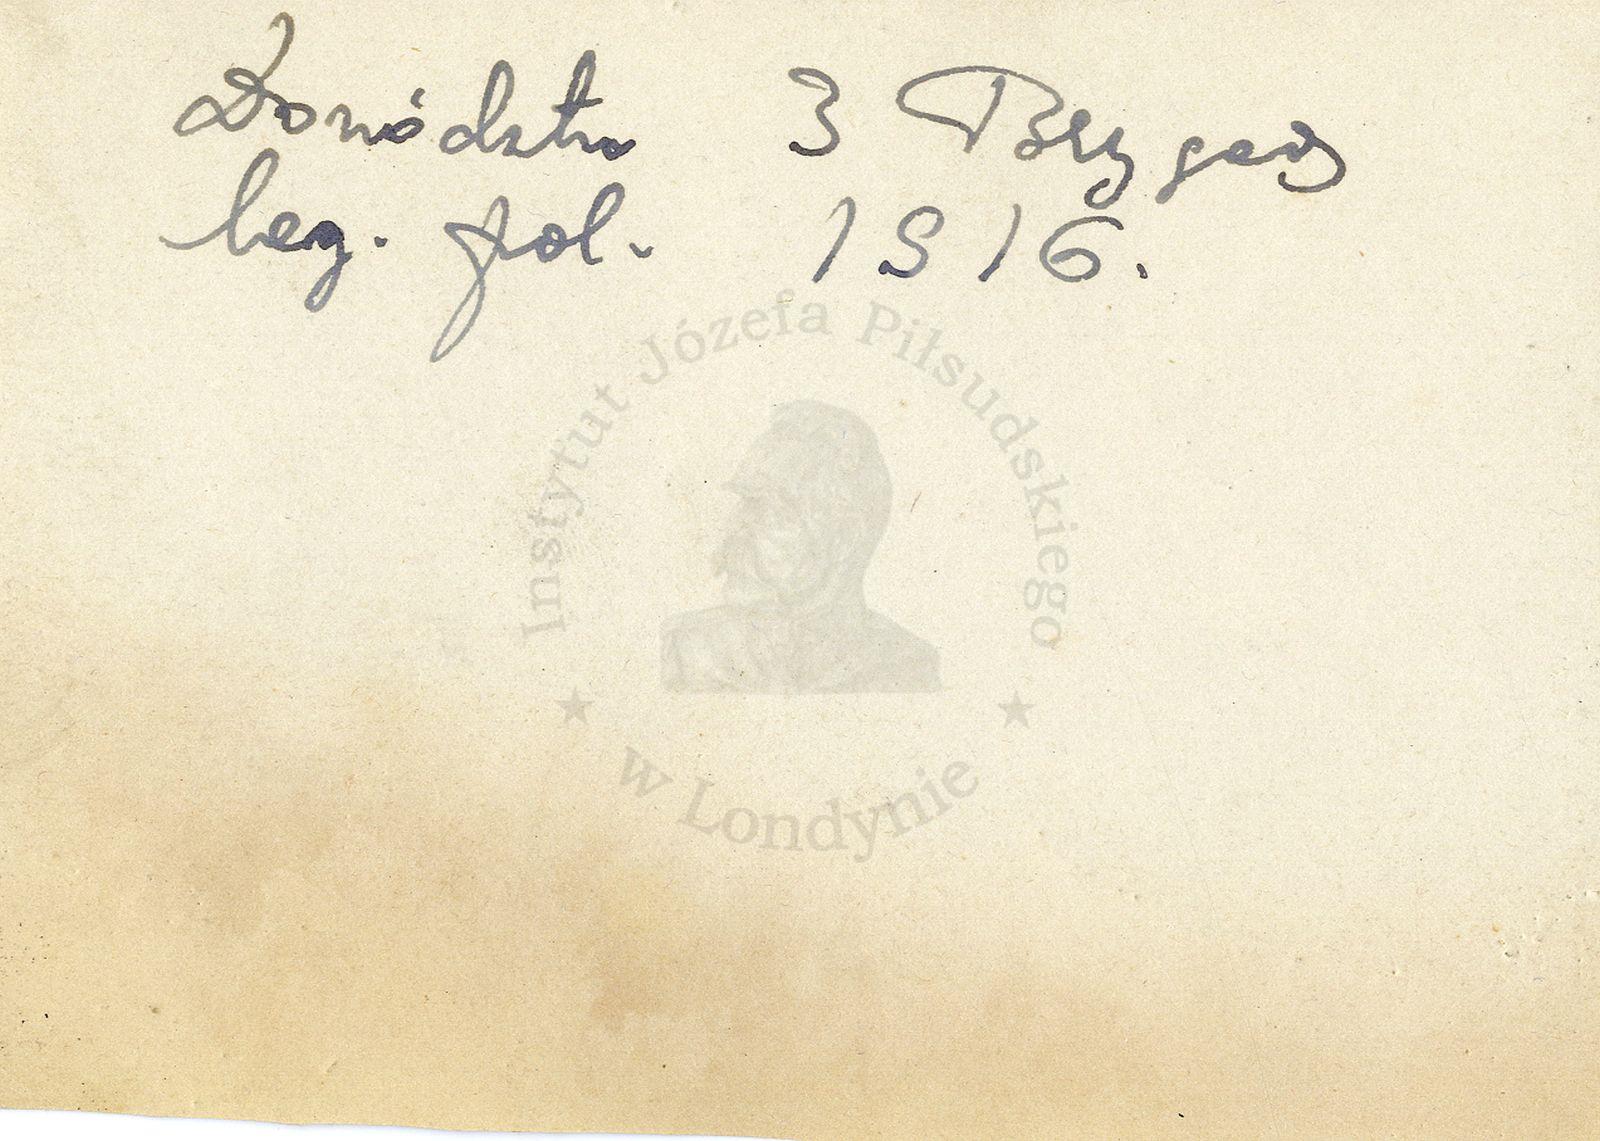 Dowództwo 3 Brygady
leg. pol. 1916.
Instytut Józefa Piłsudskiego
w Londynie